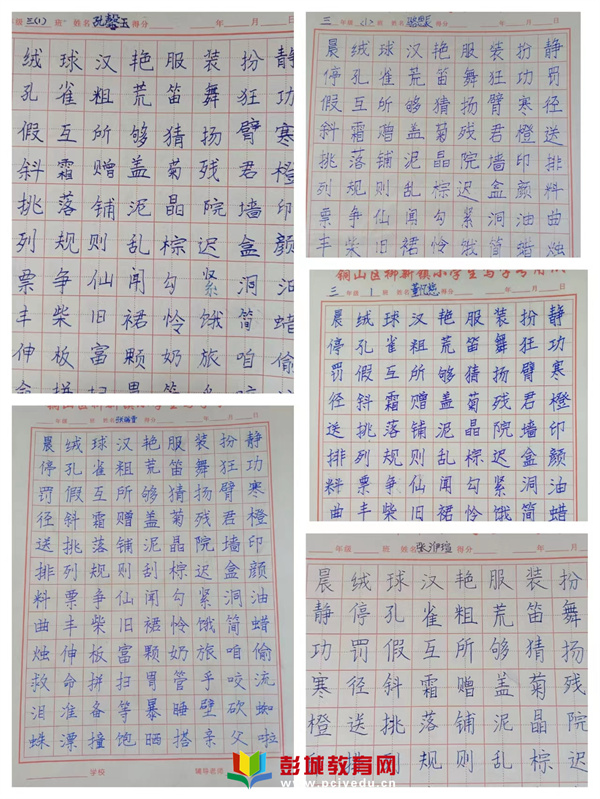 级 三(1) 班 姓名 孔馨玉 得分 年 月 日
绒球汉艳服装扮静
孔雀粗荒笛舞狂功
假互所够猜扬臂寒
斜霜赠盖菊残君橙
挑落铺泥晶院墙印
列规则乱棕迟盒颜
票争仙闻勾紧洞油
丰柴旧裙怜饿简蜡
伸板富颗奶旅咱偷
三 年级 (1) 班 姓名 得分 年 月 日
晨绒球汉艳服装扮静
停孔雀荒笛舞狂功罚
假互所够猜扬臂寒径
斜霜赠盖菊残君橙送
挑落铺泥晶院墙印排
列规则乱棕迟盒颜料
票争仙闻勾紧洞油曲
丰柴旧裙怜饿简蜡烛
铜山区柳新镇小学生写字专用纸
三 年级 1 班 姓名 得分 年 月 日
晨绒球汉艳服装扮静
停孔雀粗荒笛舞狂功
罚假互所够猜扬臂寒
径斜霜赠盖菊残君橙
送挑落铺泥晶院墙印
排列规则乱棕迟盒颜
料票争仙闻勾紧洞油
曲丰柴旧裙怜饿简蜡
年级 班 姓名 得分 年 月 日
晨绒球汉艳服装扮静
停孔雀粗荒笛舞狂功
罚假互所够猜扬臂寒
径斜霜赠盖菊残君橙
送挑落铺泥晶院墙印
排列规则刮棕迟盒颜
料票争仙闻勾紧洞油
曲丰柴旧裙怜饿简蜡
烛伸板富颗奶旅咱偷
救命拼扫胃管乎咬流
泪准备等暴睡壁砍蜘
蛛漂撞饱晒搭亲父啦
学校 辅导老师
年级 班 姓名 张淮瑄 得分 年 月 日
晨绒球汉艳服装扮
静停孔雀粗荒笛舞
功罚假互所够猜扬
寒径斜霜赠盖菊残
橙送挑落铺泥晶院
规则乱棕迟
彭城教育网
www.pcjyedu.cn